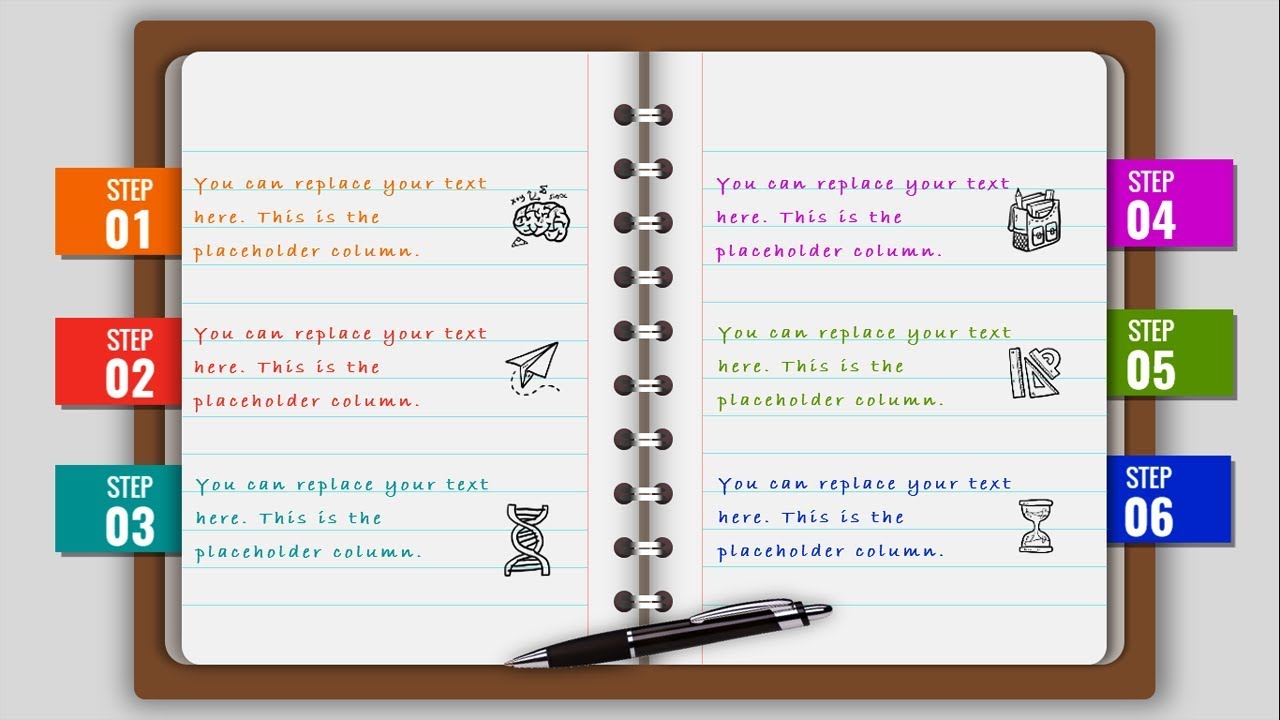 STEP
01
You can replace your text
here. This is the
placeholder column.
STEP
02
You can replace your text
here. This is the
placeholder column.
STEP
03
You can replace your text
here. This is the
placeholder column.
STEP
04
You can replace your text
here. This is the
placeholder column.
STEP
05
You can replace your text
here. This is the
placeholder column.
STEP
06
You can replace your text
here. This is the
placeholder column.